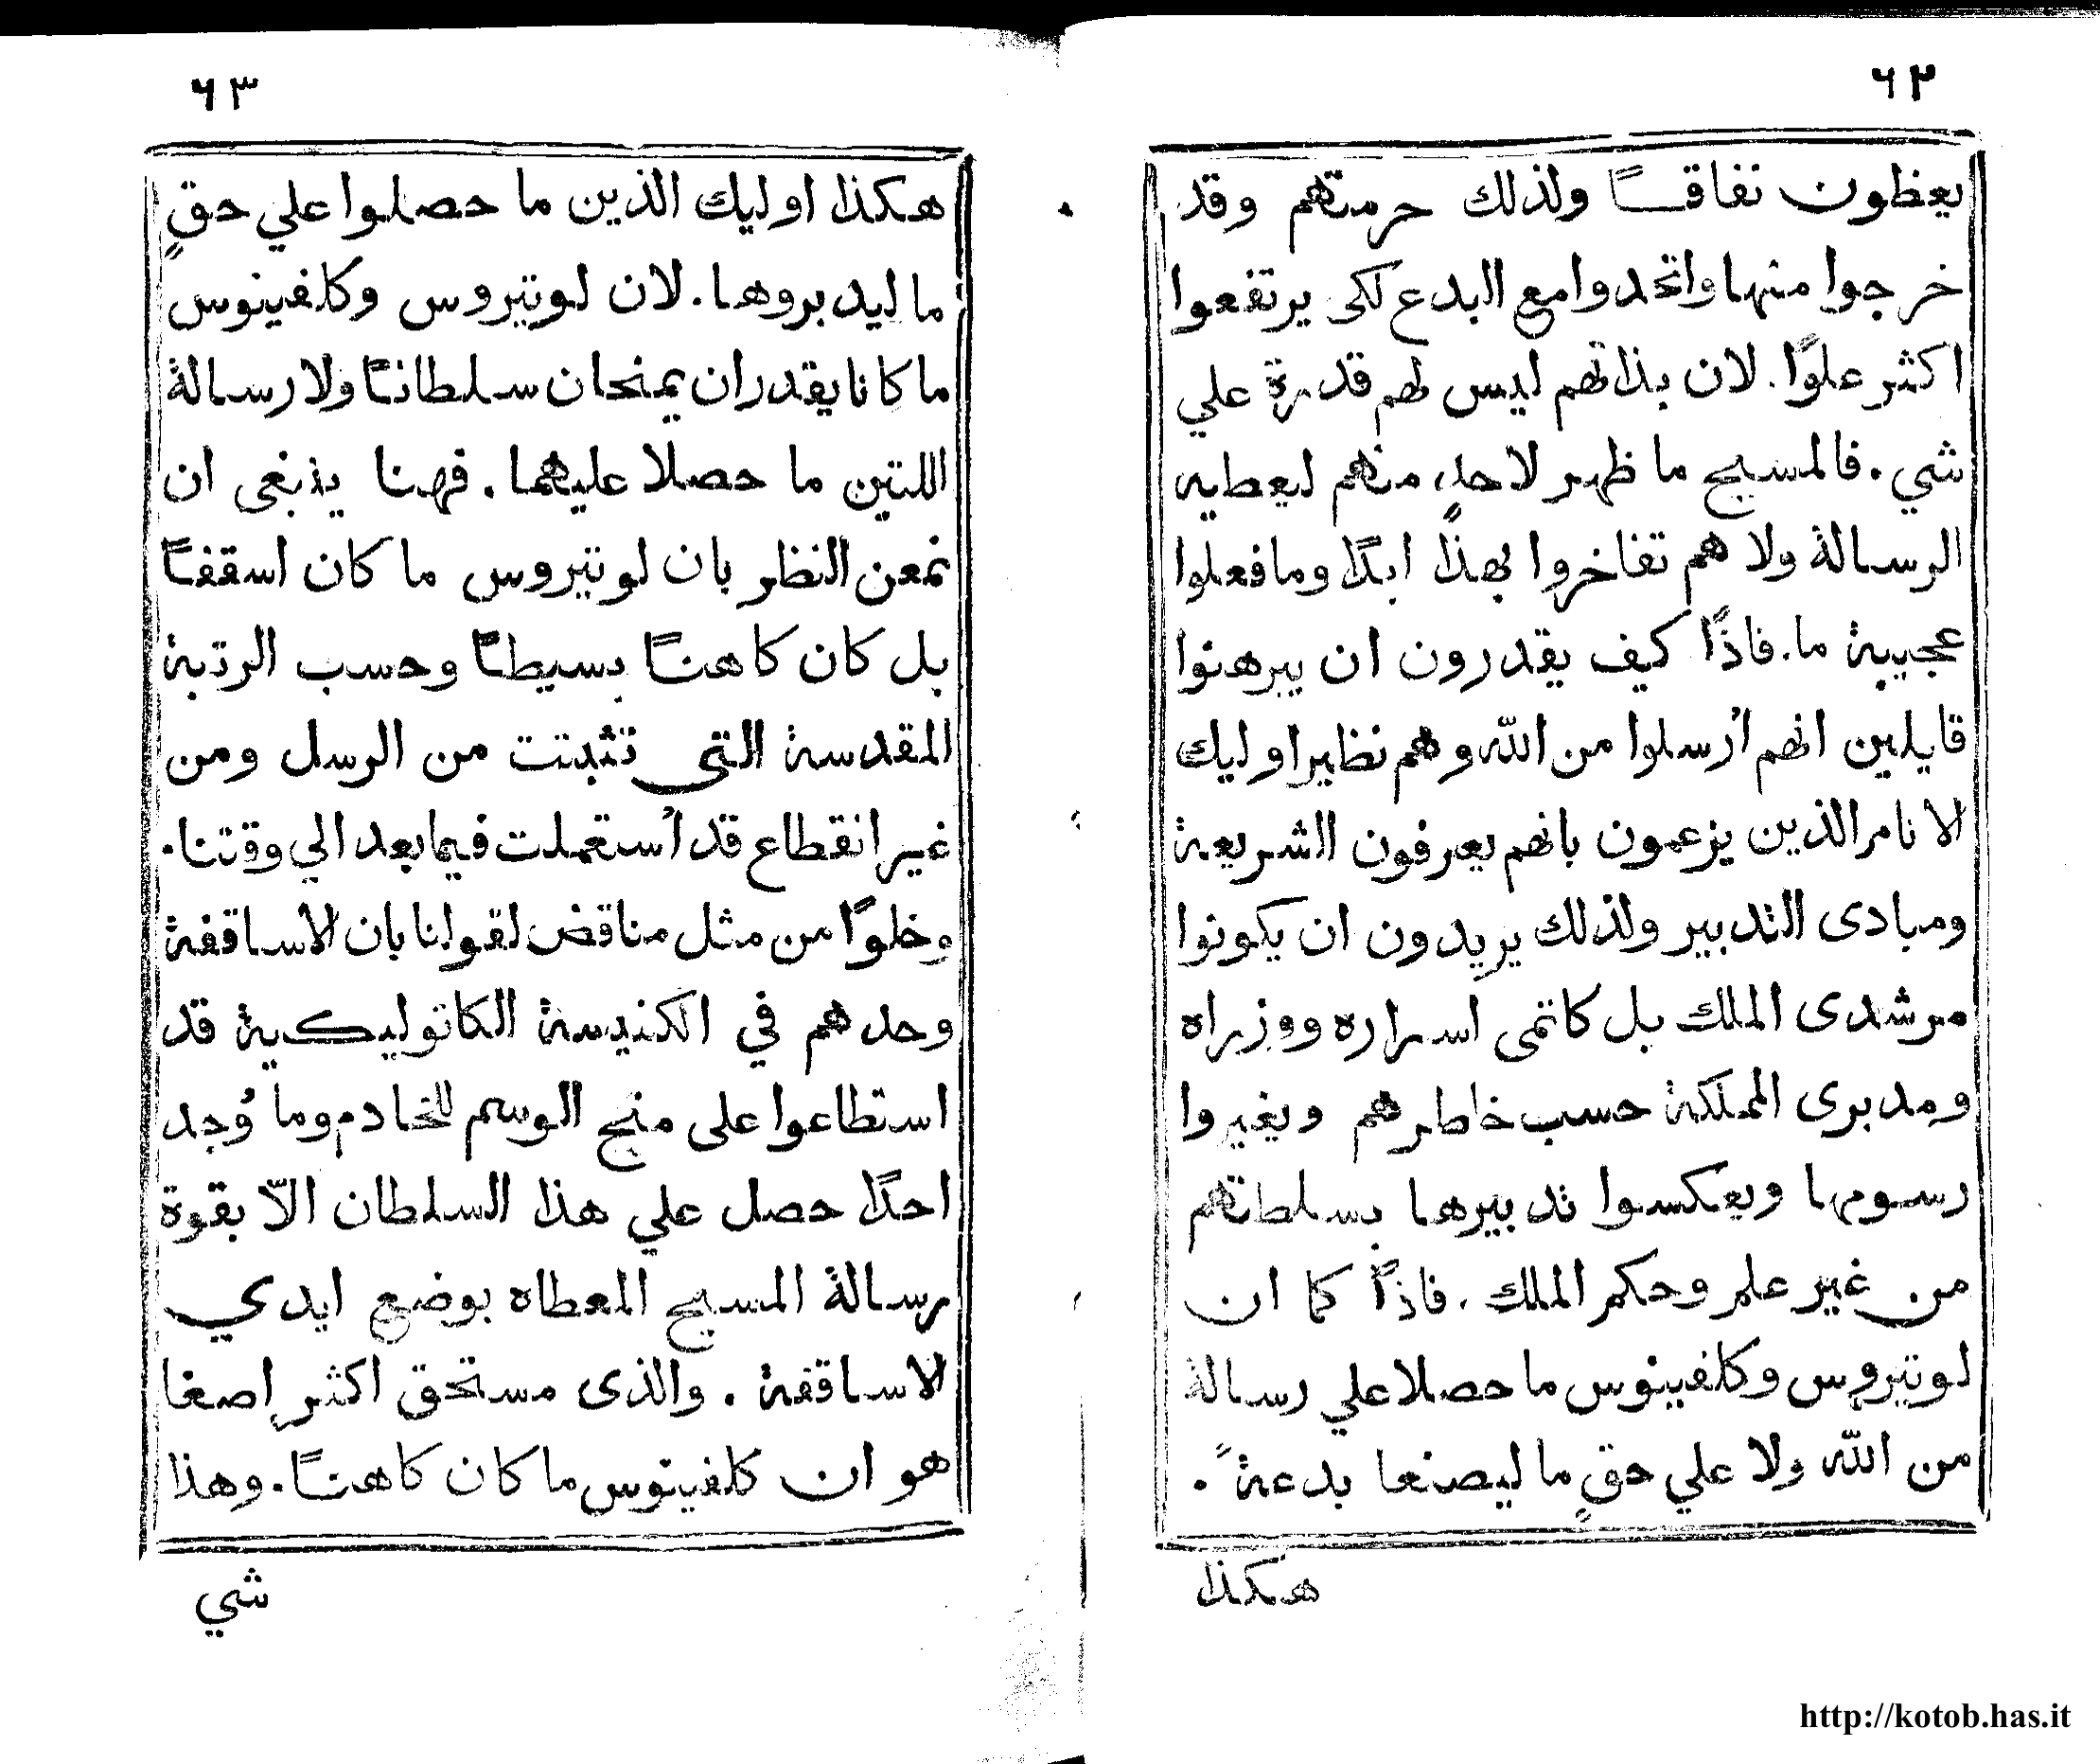 ٦٢
يعظون نفاقًا ولذلك حرمتهم وقد
خرجوا منها واتحدوا مع البدع لكى يرتفعوا
اكثر علوًا. لان بذاتهم ليس لهم قدرة علي
شي. فالمسيح ما ظهر لاحدٍ منهم ليعطيه
الرسالة ولا هم تفاخروا بهذا ابدًا وما فعلوا
عجيبة ما. فاذًا كيف يقدرون ان يبرهنوا
قايلين انهم أرسلوا من الله وهم نظير اوليك
الانام الذين يزعمون بانهم يعرفون الشريعة
ومبادى التدبير ولذلك يريدون ان يكونوا
مرشدى الملك بل كاتمى اسراره ووزراه
ومدبرى المملكة حسب خاطرهم ويغيروا
رسومها ويعكسوا تدبيرها بسلطتهم
من غير علم وحكم الملك. فاذًا كما ان
لوتيروس وكلفينوس ما حصلا علي رسالة
من الله ولا علي حقٍ ما ليصنعا بدعةً.
هكذا
٦٣
هكذا اوليك الذين ما حصلوا علي حقٍ
ما ليدبروها. لان لوتيروس وكلفينوس
ما كانا يقدران يمنحان سلطانًا ولا رسالة
اللتين ما حصلا عليهما. فهنا ينبغى ان
نمعن النظر بان لوتيروس ما كان اسقفًا
بل كان كاهنًا بسيطًا وحسب الرتبة
المقدسة التى تثبتت من الرسل ومن
غير انقطاع قد اُستعملت فيما بعد الي وقتنا.
وخلوًا من مثل مناقض لقولنا بان الاساقفة
وحدهم في الكنيسة الكاتوليكية قد
استطاعوا على منح الوسم للخادم وما وُجد
احدًا حصل علي هذا السلطان الّا بقوة
رسالة المسيح المعطاه بوضع ايدي
الاساقفة. والذى مستحق اكثر اصغا
هو ان كلفينوس ما كان كاهنًا. وهذا
شي
http://kotob.has.it